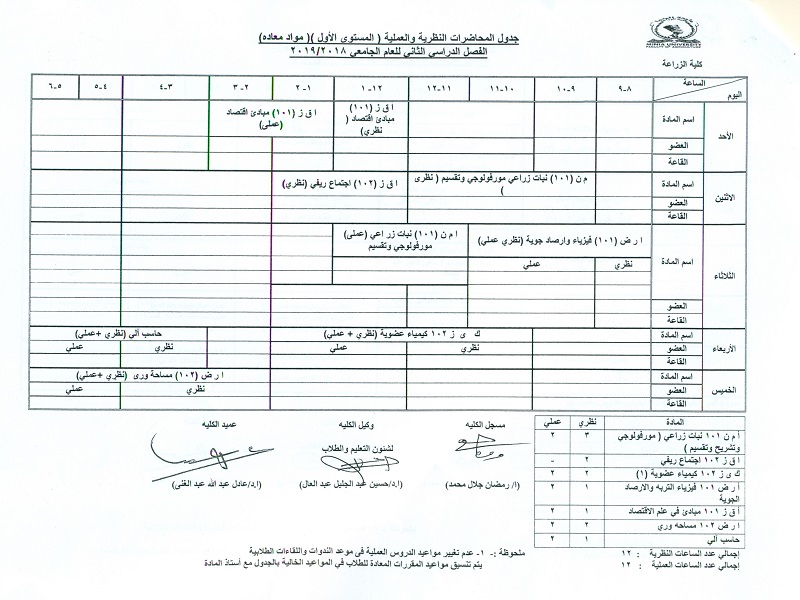 MINIA UNIVERSITY
كلية الزراعة
جدول المحاضرات النظرية والعملية ( المستوي الأول )( مواد معاده)
الفصل الدراسي الثاني للعام الجامعي ٢٠١٩/٢٠١٨
الساعة
اليوم
٨-٩ ٩-١٠ ١٠-١١ ١١-١٢ ١٢-١ ١-٢ ٢-٣ ٣-٤ ٤-٥ ٥-٦
الأحد
اسم المادة
العضو
القاعة
ا ق ز (١٠١)
مبادئ اقتصاد (
نظري)
ا ق ز (١٠١) مبادئ اقتصاد
(عملى)
الاثنين
اسم المادة
العضو
القاعة
م ن (١٠١) نبات زراعي مورفولوجي وتقسيم ( نظرى
)
ا ق ز (١٠٢) اجتماع ريفي (نظري)
الثلاثاء
اسم المادة
العضو
القاعة
ا ر ض (١٠١) فيزياء وارصاد جوية (نظري عملي)
نظري عملي
ا م ن (١٠١) نبات زراعي (عملي)
مورفولوجي وتقسيم
الأربعاء
اسم المادة
العضو
القاعة
ك ى ز ١٠٢ كيمياء عضوية (نظري + عملي)
نظري عملي
حاسب آلي (نظري +عملي)
نظري عملي
الخميس
اسم المادة
العضو
القاعة
ا ر ض (١٠٢) مساحة ورى (نظري +عملي)
نظري عملي
المادة نظري عملي
أ م ن ١٠١ نبات زراعي ( مورفولوجي
وتشريح وتقسيم ) ٣ ٢
ا ق ز ١٠٢ اجتماع ريفي ٢ -
ك ى ز ١٠٢ كيمياء عضوية (١) ٢ ٢
أ ر ض ١٠١ فيزياء التربه والارصاد
الجوية ١ ٢
أ ق ز ١٠١ مبادئ في علم الاقتصاد ١ ٢
ا ر ض ١٠٢ مساحه وري ٢ ٢
حاسب آلي ١ ٢
إجمالي عدد الساعات النظرية : ١٢
إجمالي عدد الساعات العملية : ١٢
مسجل الكليه
ا/ رمضان جلال محمد)
وكيل الكليه
لشئون التعليم والطلاب
(ا.د/حسين عبد الجليل عبد العال)
عميد الكليه
(ا.د/عادل عبد الله عبد الغنى)
ملحوظة :- ١- عدم تغيير مواعيد الدروس العملية فى موعد الندوات واللقاءات الطلابية
يتم تنسيق مواعيد المقررات المعادة للطلاب في المواعيد الخالية بالجدول مع أستاذ المادة